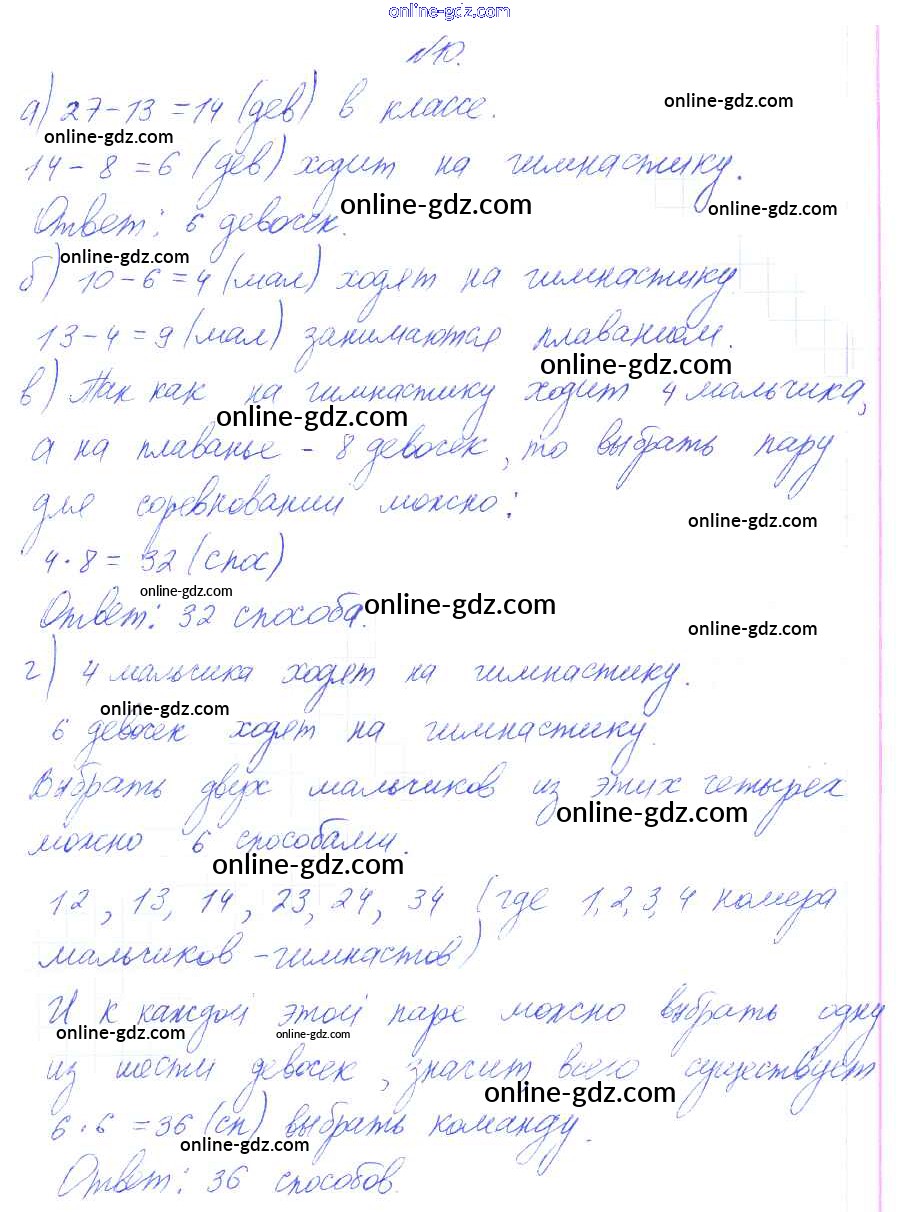 online-gdz.com
№10.
а) 27-13=14 (дев) в классе.
online-gdz.com
online-gdz.com
14-8=6 (дев) ходит на гимнастику.
online-gdz.com
online-gdz.com
Ответ: 6 девочек.
online-gdz.com
б) 10-6=4 (мал) ходят на гимнастику.
13-4=9 (мал) занимаются плаванием.
online-gdz.com
в) Так как на гимнастику ходит 4 мальчика,
online-gdz.com
а на плаванье - 8 девочек, то выбрать пару
для соревнований можно:
online-gdz.com
4·8=32 (спос)
online-gdz.com
online-gdz.com
Ответ: 32 способа.
online-gdz.com
г) 4 мальчика ходят на гимнастику.
online-gdz.com
6 девочек ходят на гимнастику.
Выбрать двух мальчиков из этих четырёх
online-gdz.com
можно 6 способами.
online-gdz.com
12, 13, 14, 23, 24, 34 (где 1,2,3,4 номера
мальчиков-гимнастов)
И к каждой этой паре можно выбрать одну
online-gdz.com
online-gdz.com
из шести девочек, значит всего существует
online-gdz.com
6·6=36 (сп) выбрать команду.
online-gdz.com
Ответ: 36 способов.